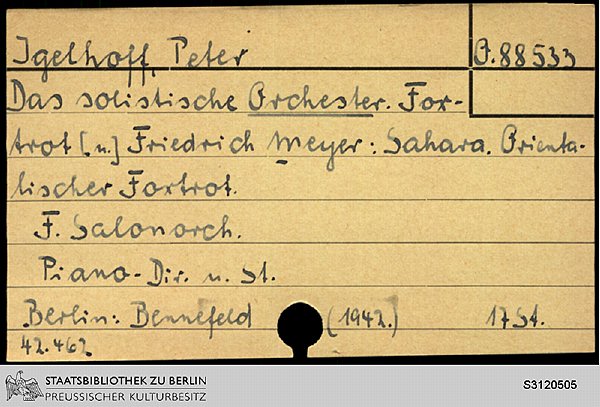 Igelhoff, Peter
O. 88533
Das solistische Orchester. Fox-
trot [u.] Friedrich Meyer: Sahara. Orienta-
lischer Foxtrot.
F. Salonorch.
Piano-Dir. u. St.
Berlin: Bennefeld (1942.) 17 St.
42.462
STAATSBIBLIOTHEK ZU BERLIN
PREUSSISCHER KULTURBESITZ
S3120505